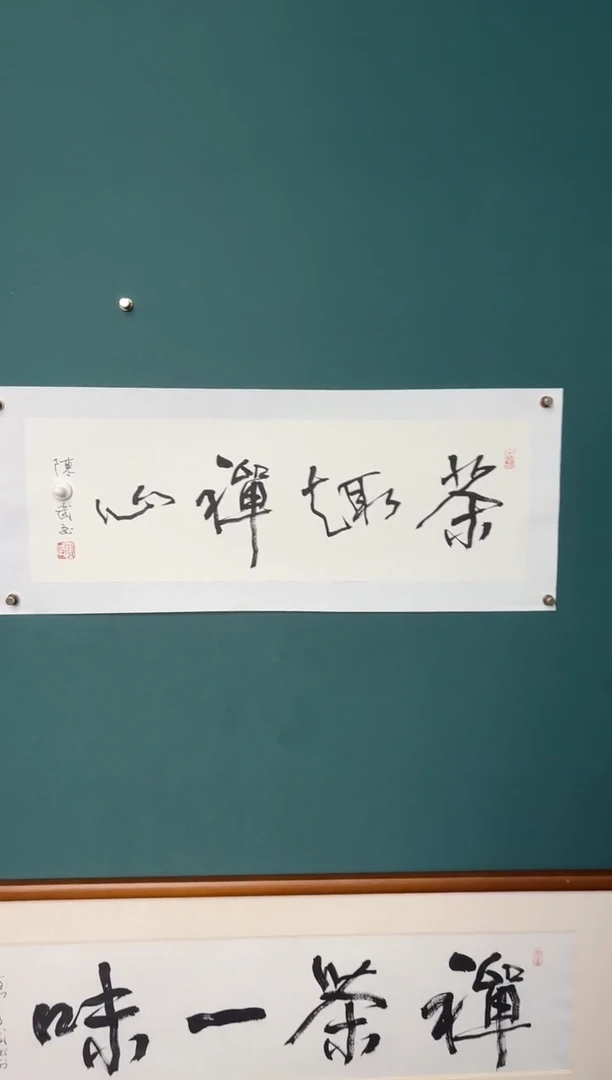 茶趣禪心
禪茶一味